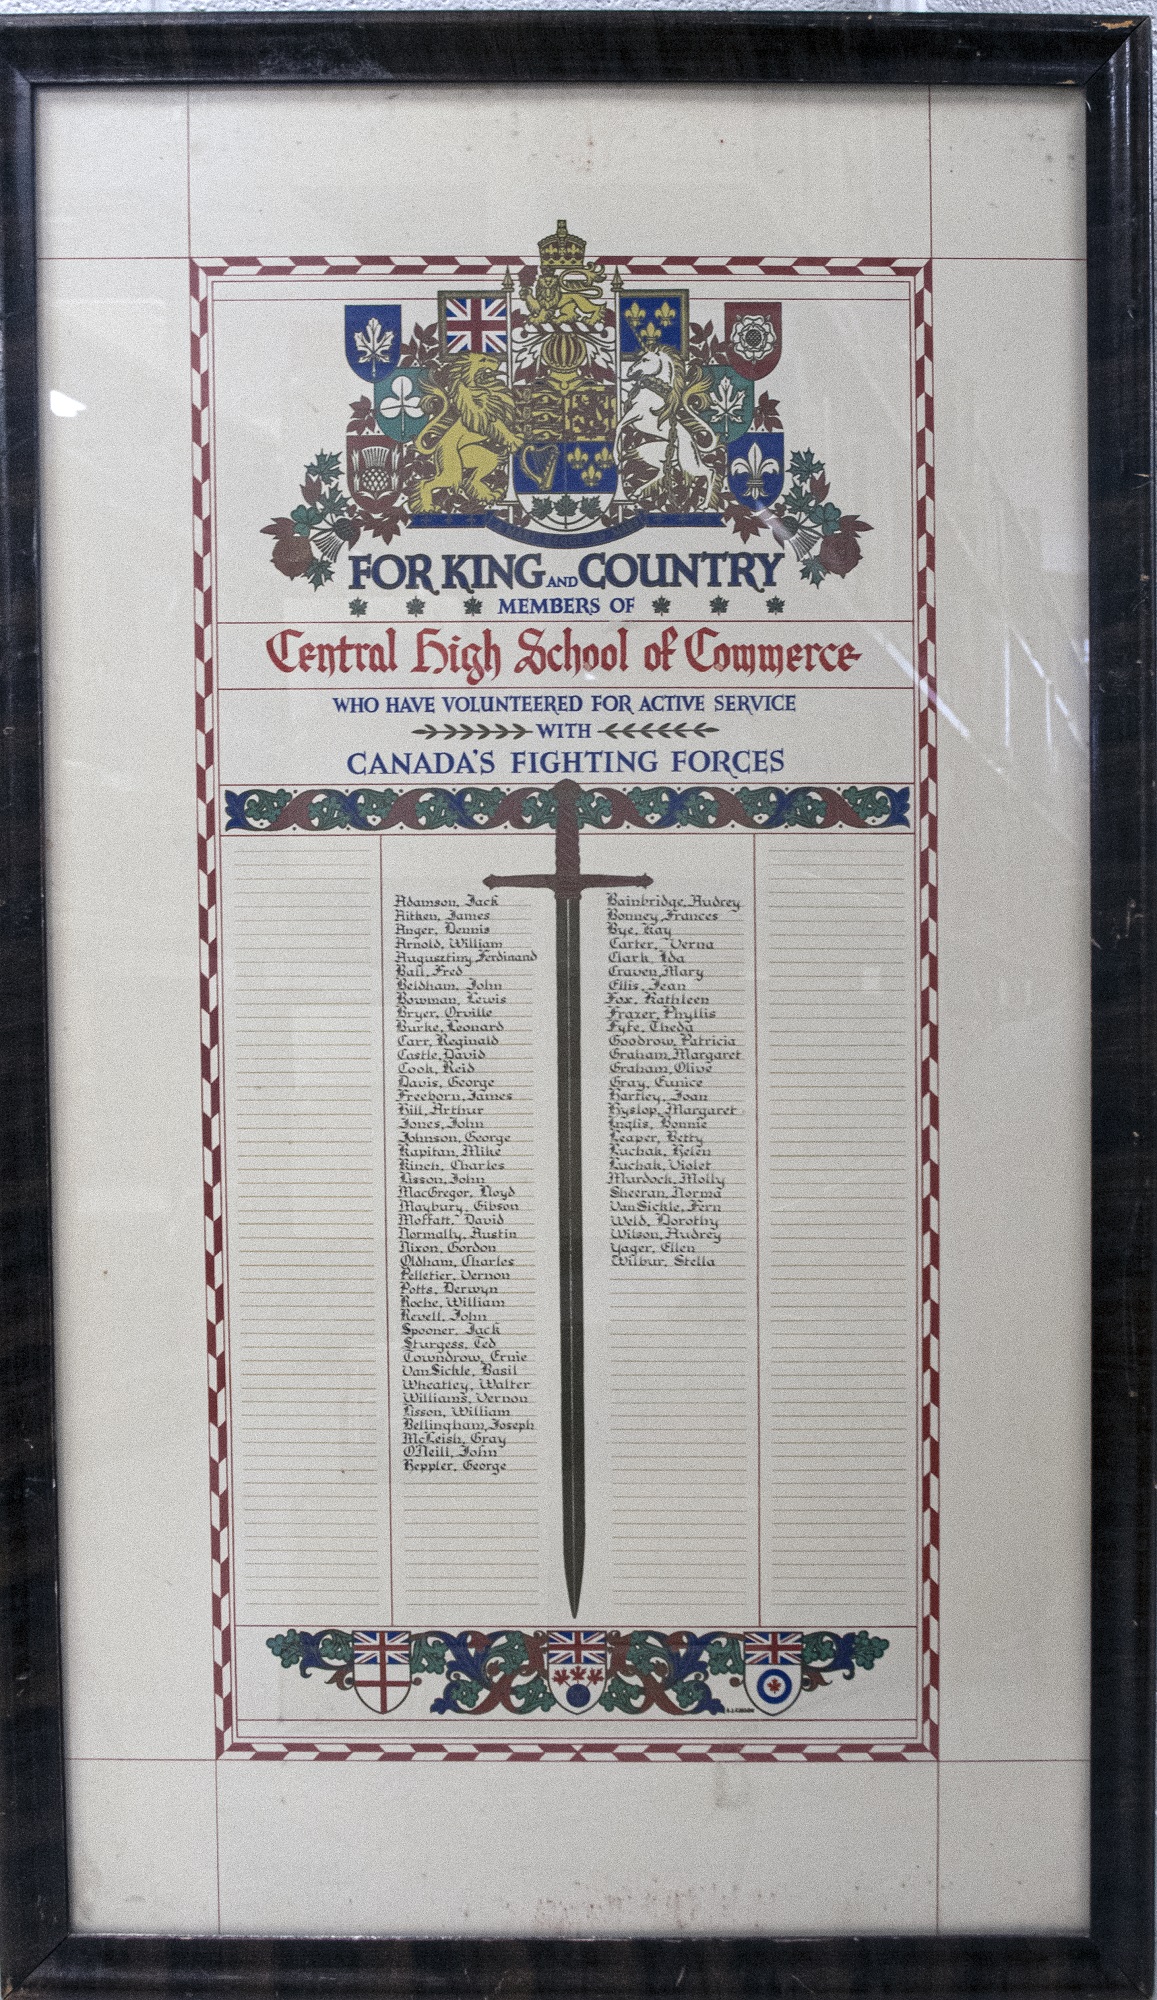 FOR KING AND COUNTRY
MEMBERS OF
Central High School of Commerce
WHO HAVE VOLUNTEERED FOR ACTIVE SERVICE
WITH
CANADA'S FIGHTING FORCES
Adamson, Jack
Aitken, James
Anger, Dennis
Arnold, William
Augusztiny, Ferdinand
Ball, Fred
Beldham, John
Bowman, Lewis
Bryer, Orville
Burke, Leonard
Carr, Reginald
Castle, David
Cook, Reid
Davis, George
Freeborn, James
Hill, Arthur
Jones, John
Johnson, George
Kapitan, Mike
Kinch, Charles
Lisson, John
MacGregor, Lloyd
Maybury, Gibson
Moffatt, David
Normally, Austin
Nixon, Gordon
Oldham, Charles
Pelletier, Vernon
Potts, Derwyn
Roche, William
Revell, John
Spooner, Jack
Sturgess, Ted
Towndrow, Ernie
VanSickle, Basil
Wheatley, Walter
Williams, Vernon
Lisson, William
Bellingham, Joseph
McLeish, Gray
O'Neill, John
Keppler, George
Bainbridge, Audrey
Bonney, Frances
Bye, Kay
Carter, Verna
Clark, Ida
Craven, Mary
Ellis, Jean
Fox, Kathleen
Frazer, Phyllis
Fyfe, Theda
Goodrow, Patricia
Graham, Margaret
Graham, Olive
Gray, Eunice
Hartley, Joan
Hyslop, Margaret
Inglis, Bonnie
Leaper, Betty
Luchak, Helen
Luchak, Violet
Murdock, Molly
Sheeran, Norma
VanSickle, Fern
Weld, Dorothy
Wilson, Audrey
Yager, Ellen
Wilbur, Stella